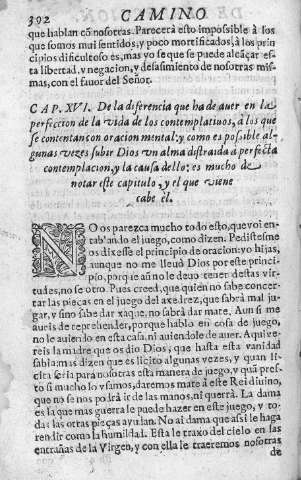 392 CAMINO
que hablan cõ nosotras. Parecerá esto impossible á los
que somos mui sentidos, y poco mortificados, á los prin
cipios dificultoso es, mas yo se que se puede alcáçar es-
ta libertad, y negacion, y desasimiento de nosotras mis-
mas, con el fauor del Señor.
CAP. XVI. De la diferencia que ha de auer en la
perfeccion de la vida de los contemplatiuos, à los que
se contentan con oracion mental: y como es posible al-
gunas vezes subir Dios vn alma distraida à perfecta
contemplacion, y la causa dello: es mucho de
notar este capitulo, y el que viene
cabe el.
NO os parezca mucho todo esto, que voi en-
tablando el juego, como dizen. Pedistesme
os dixesse el principio de oracion: yo hijas,
aunque no me lleuó Dios por este princi
pio, porque aú no le deuo tener destas vir-
tudes, no se otro. Pues creed, que quien no sabe concer-
tar las pieças en el juego del axedrez, que sabrá mal ju-
gar, y sino sabe dar xaque, no sabrá dar mate. Aun si me
auris de reprehender, porque hablo en cosa de juego,
no le auiendo en esta casa, ni auiendole de auer. Aqui ve-
reis la madre que os dio Dios, que hasta esta vanidad
sabia: mas dizen que es licito algunas vezes, y quan li-
cita seria para nosotras esta manera de juego, y quá pres-
to si mucho lo vsamos, daremos mate à este Rei diuino,
que no se nos podrà ir de las manos, ni querrà. La dama
es la que mas guerra le puede hazer en este juego, y to-
das las otras pieças ayudan. No ai dama que assi le haga
rendir como la humildad. Esta le traxo del cielo en las
entrañas de la Virgen, y con ella le traeremos nosotras
de